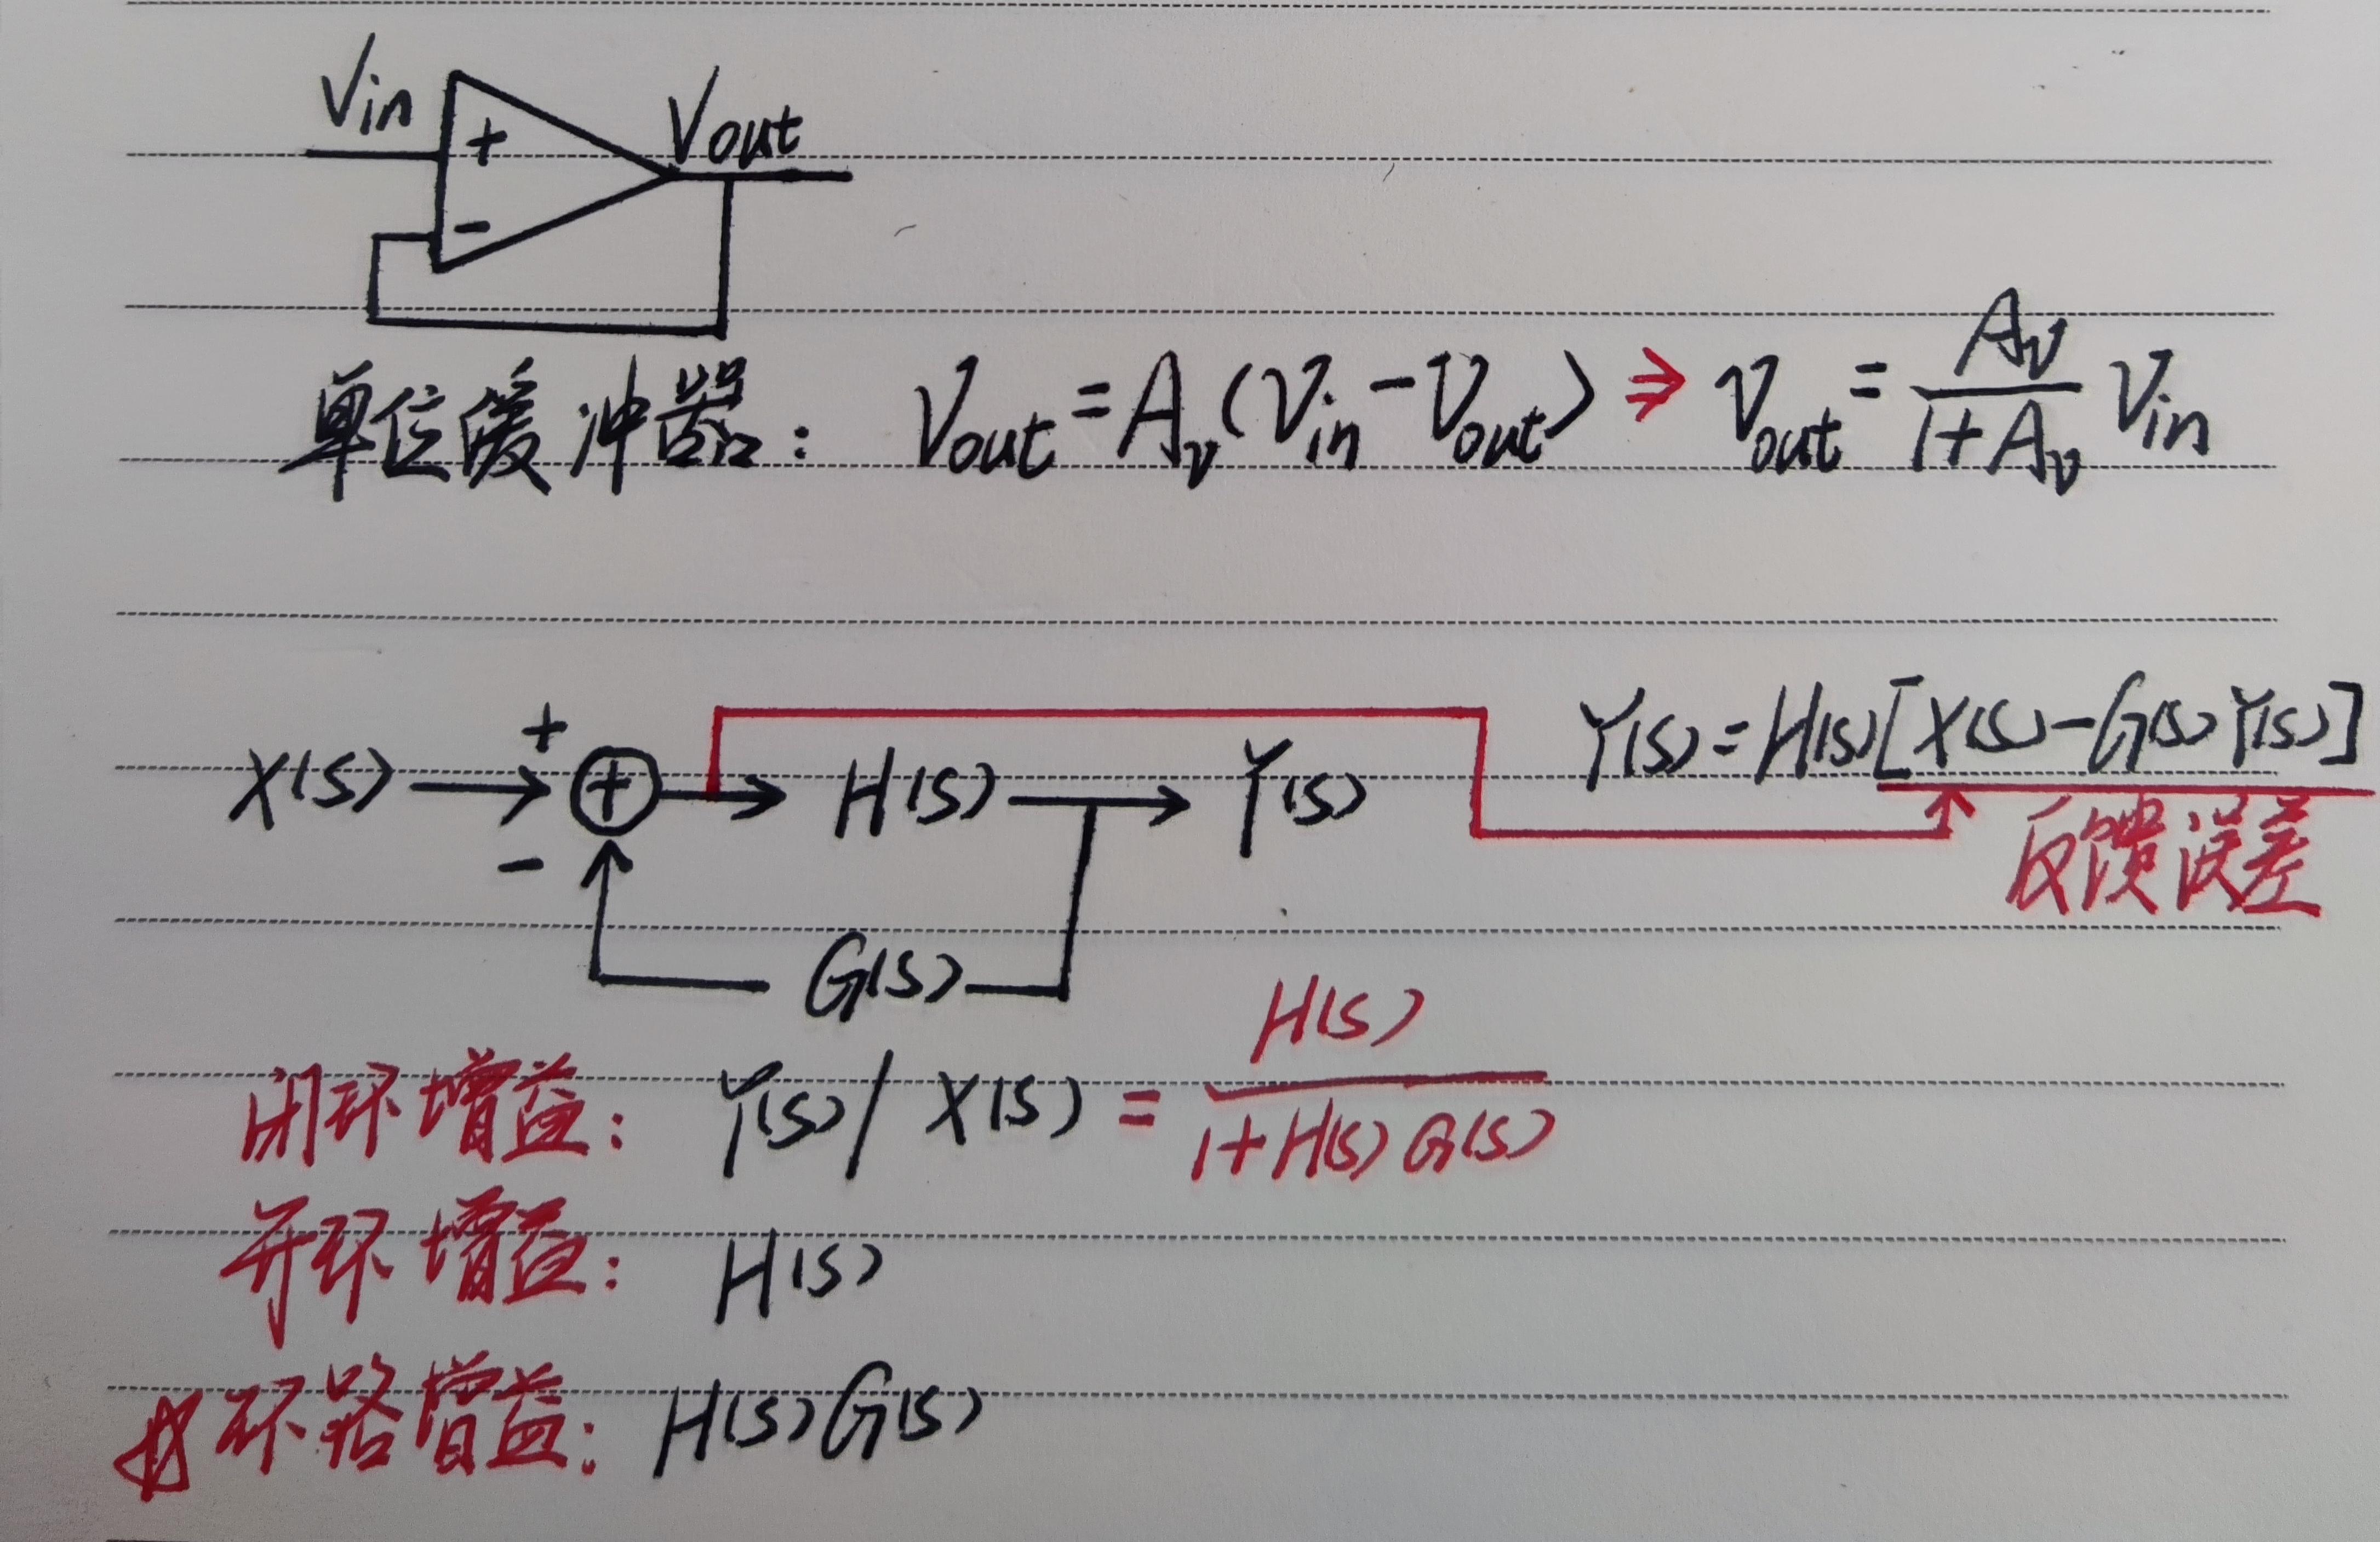 Vin
+
Vout
-
单位缓冲器: Vout = Av(Vin - Vout) ⇒ Vout = Av/(1+Av) Vin
Y(s) = H(s)[X(s) - G(s)Y(s)]
反馈误差
+
X(s) → ⊕ → H(s) → Y(s)
-
G(s)
闭环增益: Y(s) / X(s) = H(s)/(1+H(s)G(s))
开环增益: H(s)
环路增益: H(s)G(s)